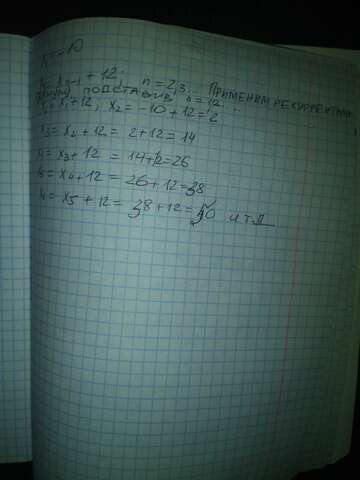 x₁=-10
xₙ=xₙ₋₁+12; n=2,3... Применим рекуррентную
формулу подставив n=12...
x₂=x₁+12, x₂=-10+12=2
x₃=x₂+12=2+12=14
x₄=x₃+12=14+12=26
x₅=x₄+12=26+12=38
x₆=x₅+12=38+12=50 и.т.д